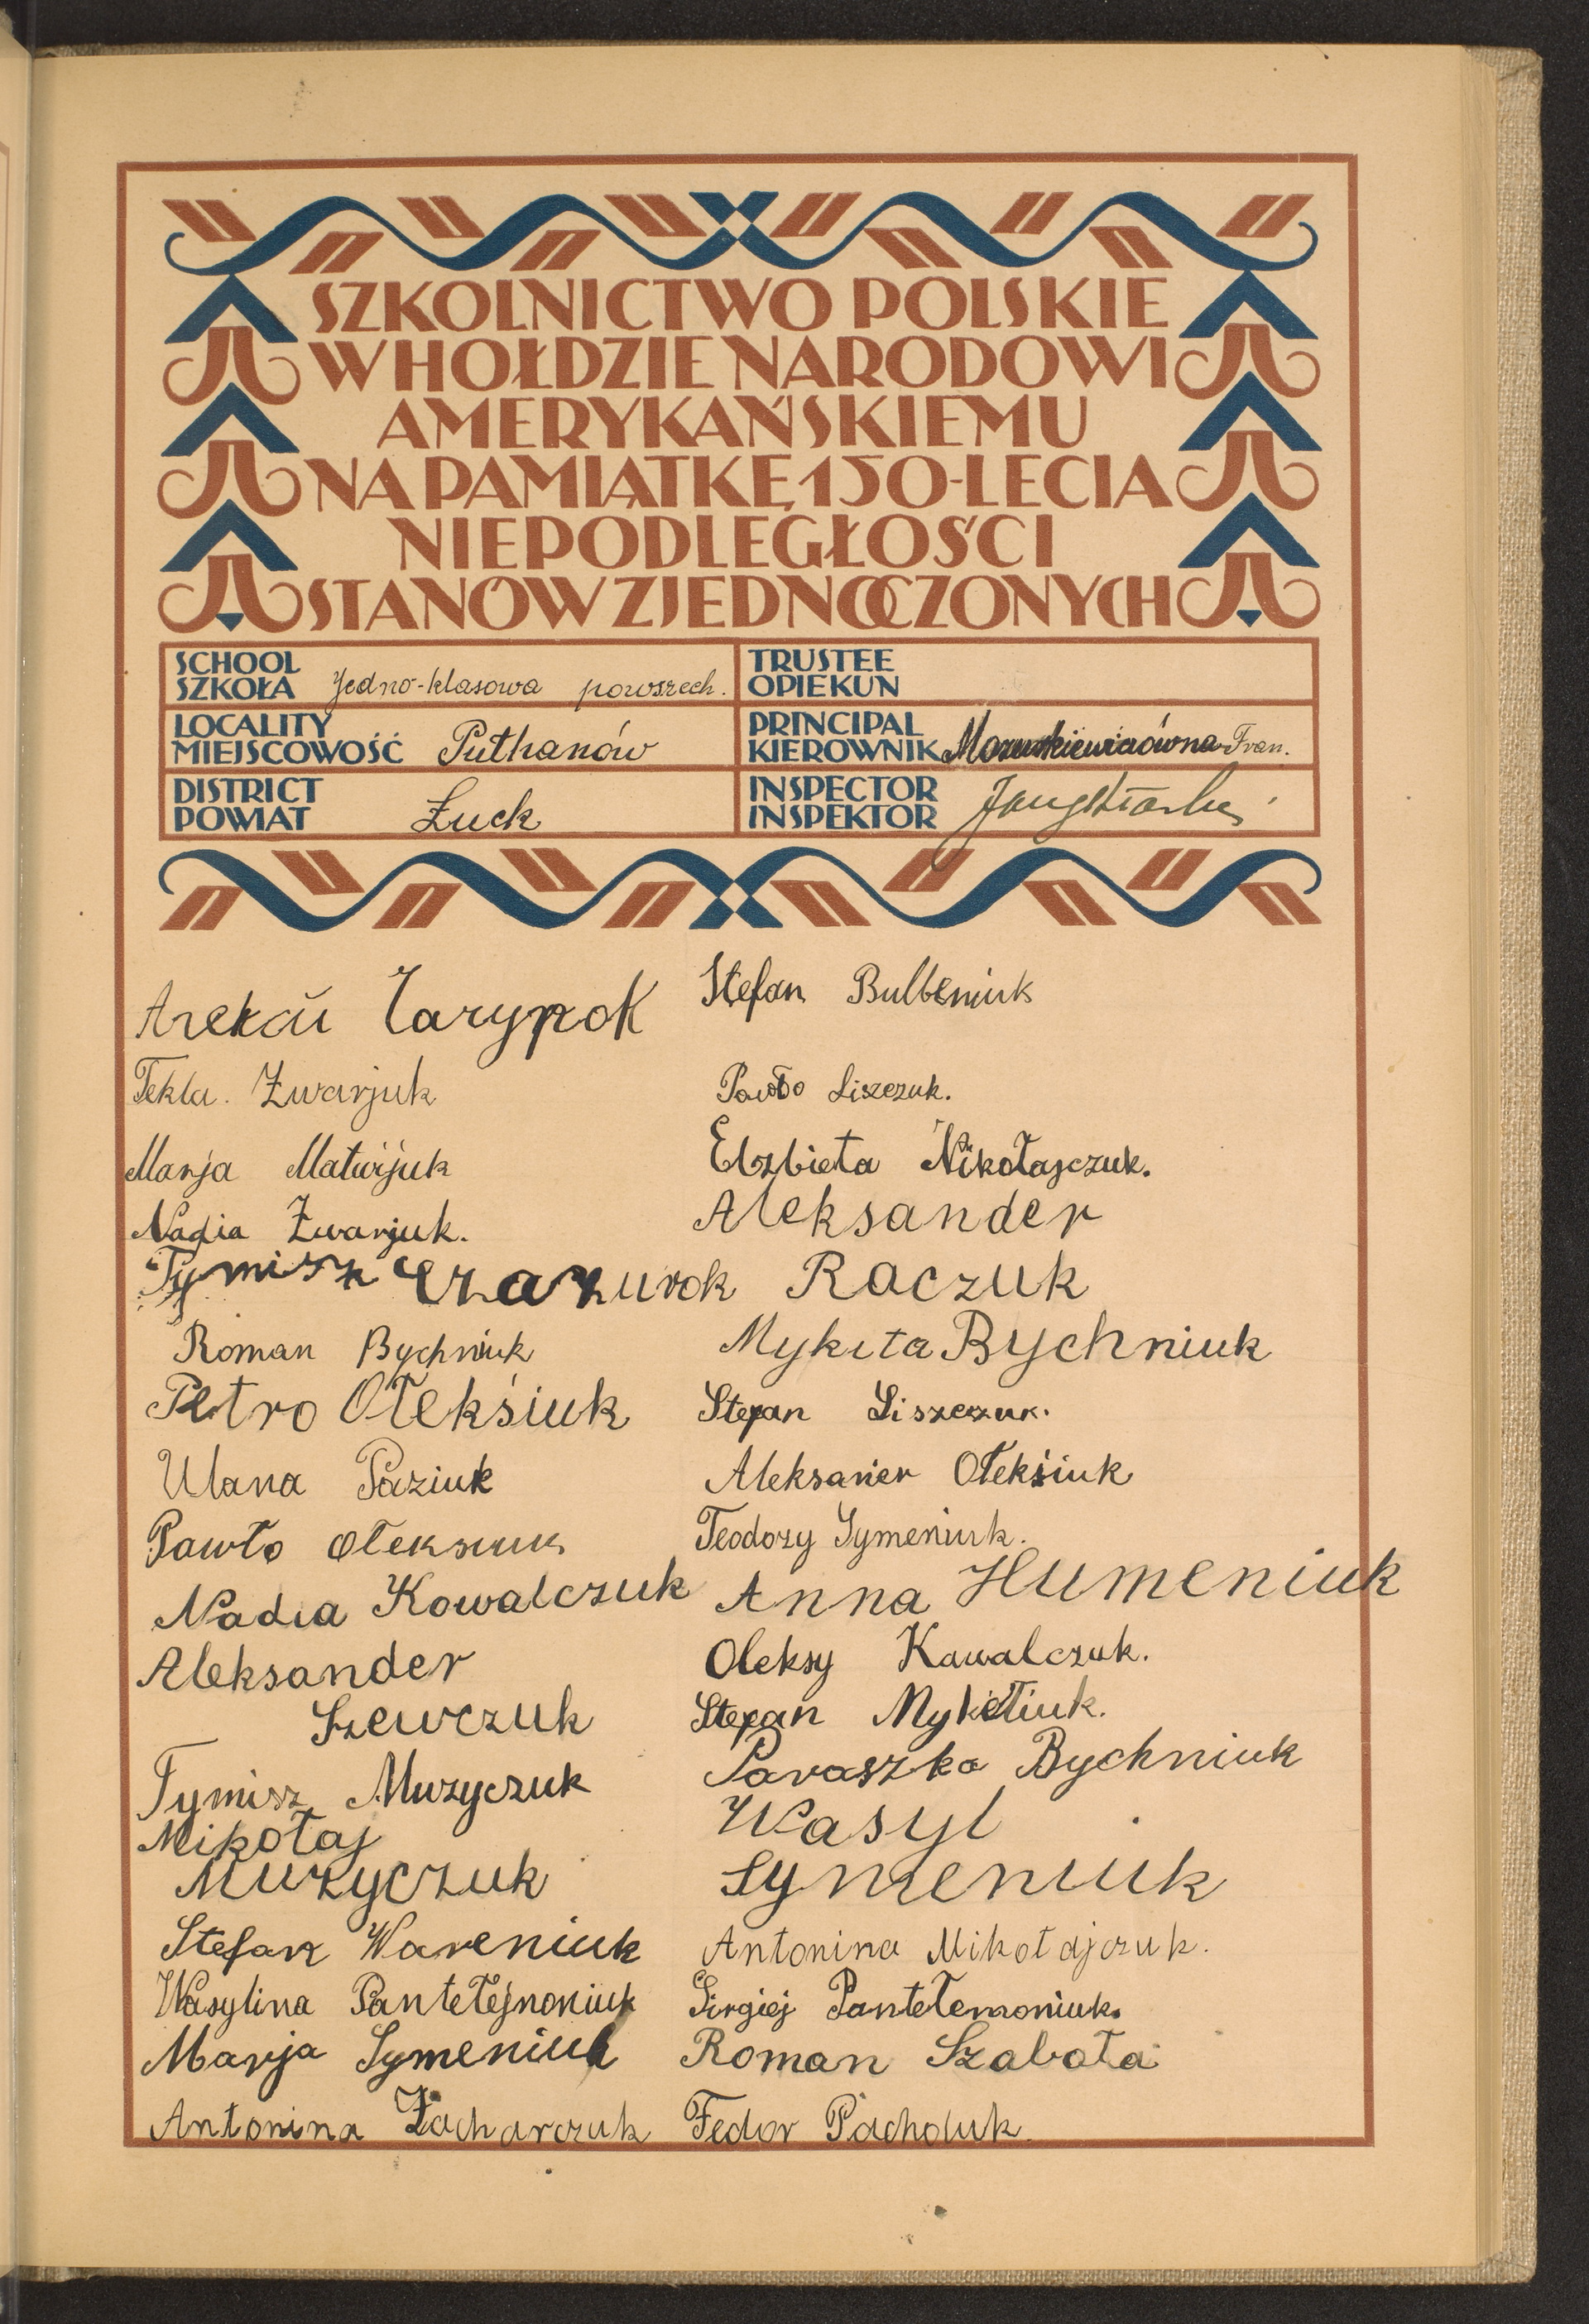 SZKOLNICTWO POLSKIE
W HOŁDZIE NARODOWI
AMERYKAŃSKIEMU
NA PAMIĄTKĘ 150-LECIA
NIEPODLEGŁOŚCI
STANÓW ZJEDNOCZONYCH
SCHOOL
SZKOŁA Jedno-klasowa powszech.
LOCALITY
MIEJSCOWOŚĆ Puthanów
DISTRICT
POWIAT Łuck
TRUSTEE
OPIEKUN
PRINCIPAL
KIEROWNIK Fran.
INSPECTOR
INSPEKTOR
Tekla. Żwarjuk
Marja Matwijuk
Nadia Żwarjuk.
Tymisz Czazurok
Roman Bychniuk
Petro Ołekśiuk
Ulana Paziuk
Pawło Ołeksiuk
Nadia Kowalczuk
Aleksander
Szewczuk
Tymisz Muzyczuk
Mikołaj
Muzyczuk
Stefan Wareniuk
Wasylina Pantełejnoniuk
Marja Symeniuk
Antonina Zacharczuk
Stefan Bulbeniuk
Pawło Liszczuk.
Elzbieta Nikołajczuk.
Aleksander
Raczuk
Mykita Bychniuk
Stepan Liszczuk.
Aleksander Ołekśiuk
Teodozy Symeniuk.
Anna Humeniuk
Oleksy Kawalczuk.
Stepan Mykitiuk.
Paraszka Bychniuk
Wasyl
Symeniuk
Antonina Mikołajczuk.
Sirgiej Pantełemoniuk.
Roman Szabała
Fedor Pacholuk.